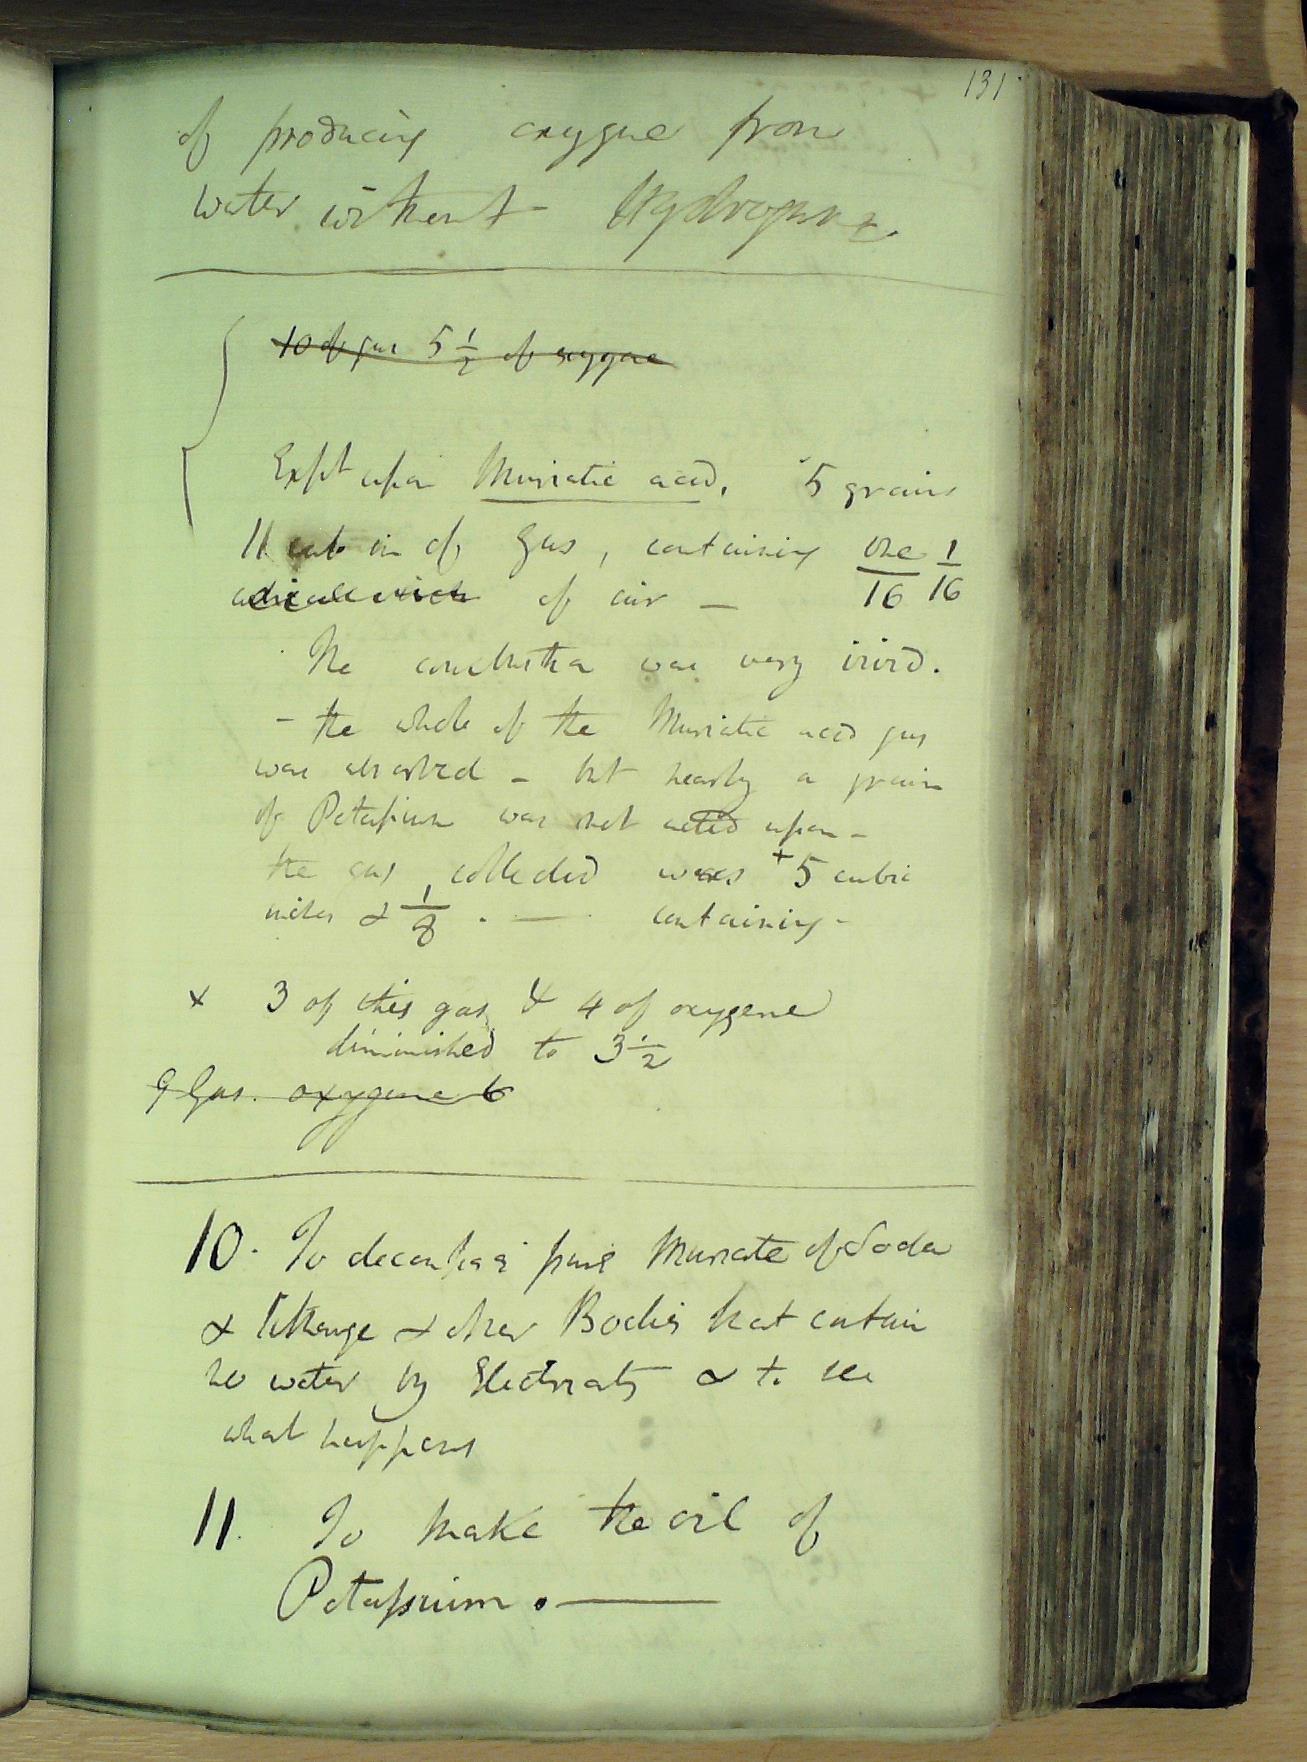 131
of producing oxygene from
water without Hydrogene.
10 of gas 5 1/2 of oxygene
Expt upon Muriatic acid. 5 grains
11 cub in of gas, containing one 1/16
of air — 16
The combustion was very vivid.
- the whole of the Muriatic acid gas
was absorbed - but nearly a grain
of Potassium was not acted upon -
the gas collected was + 5 cubic
inches & 1/8 . — containing -
x 3 of this gas & 4 of oxygene
diminished to 3 1/2
9 Gas. oxygene 6
10. To decompose pure Muriate of Soda
& litharge & other Bodies that contain
no water by Electricity & to see
what happens
11. To make the oil of
Potassium. —